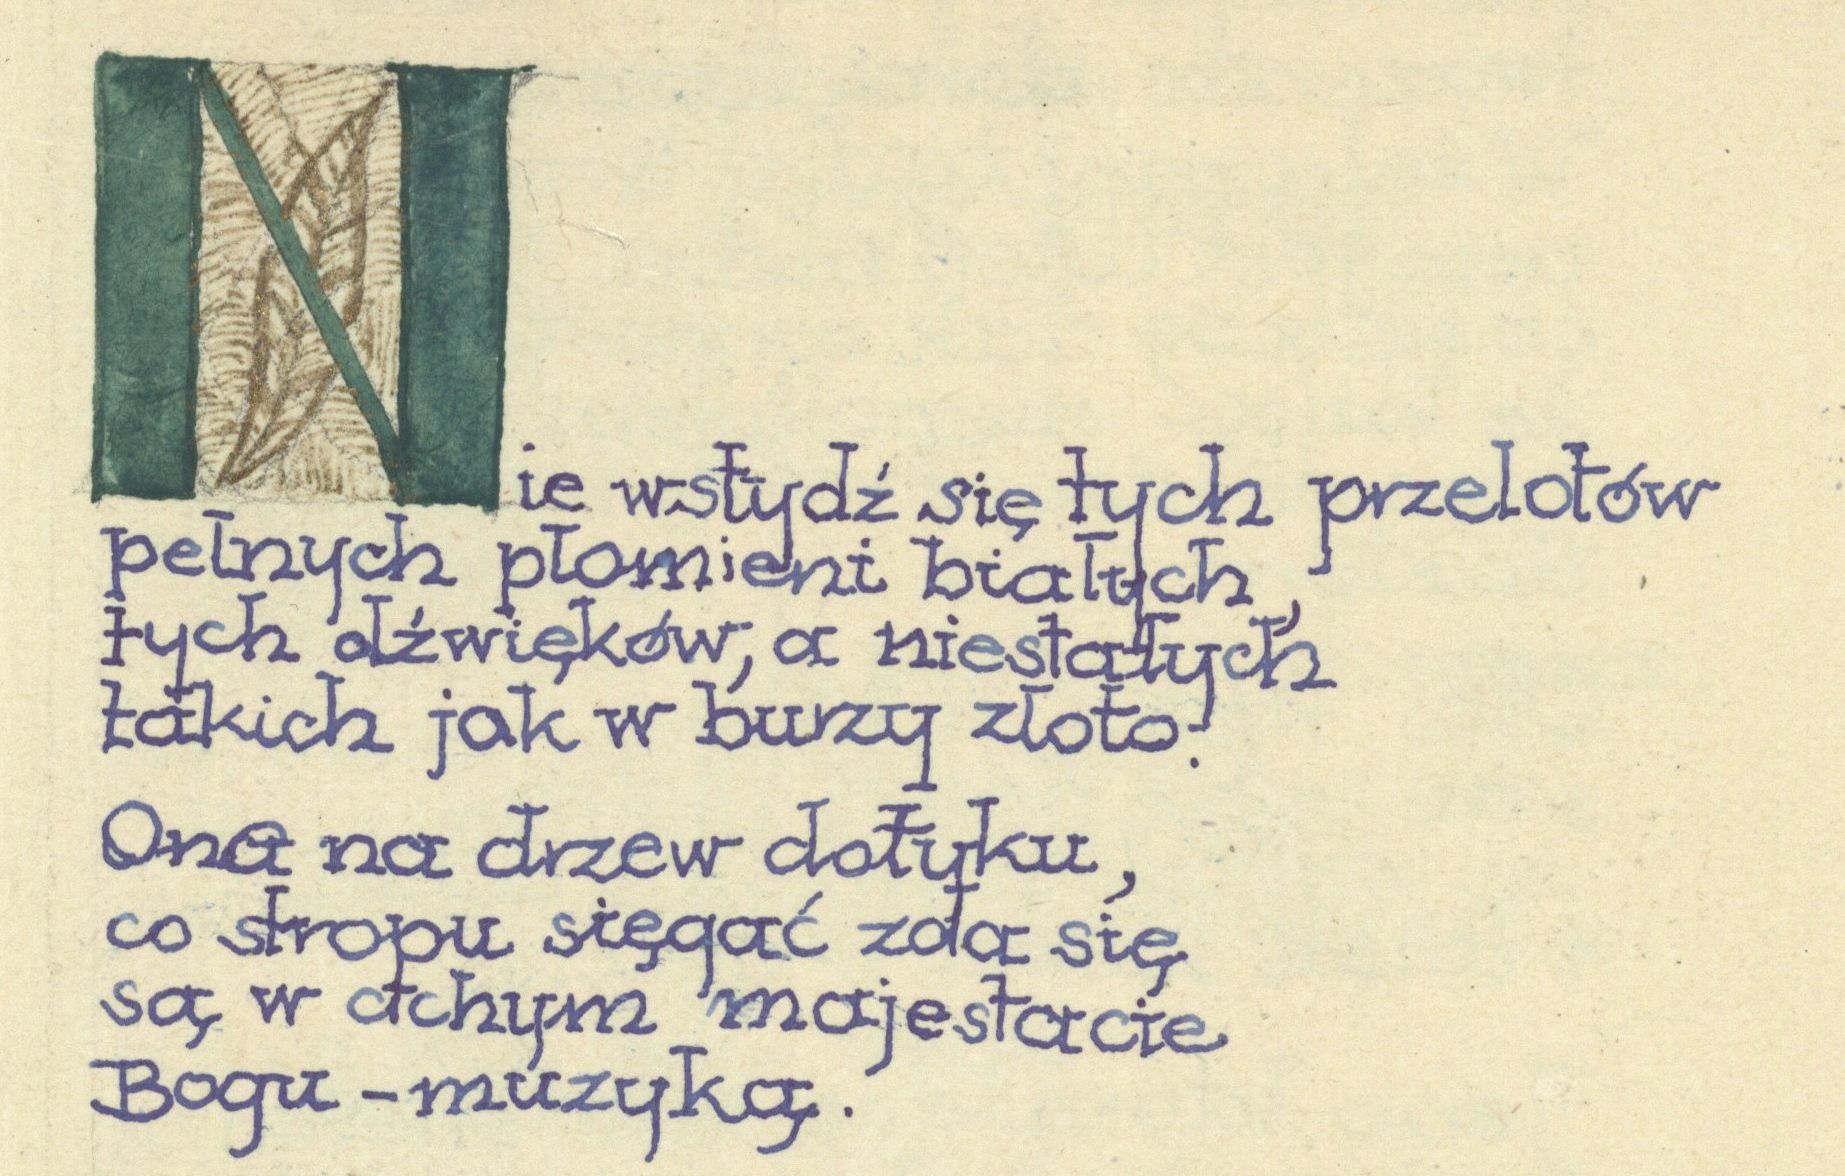 Nie wstydź się tych przelotów
pełnych płomieni białych,
tych dźwięków, a niestałych
takich jak w burzy złoto.
Ona na drzew dotyku,
co stropu sięgać zda się
są w cichym majestacie
Bogu - muzyką.